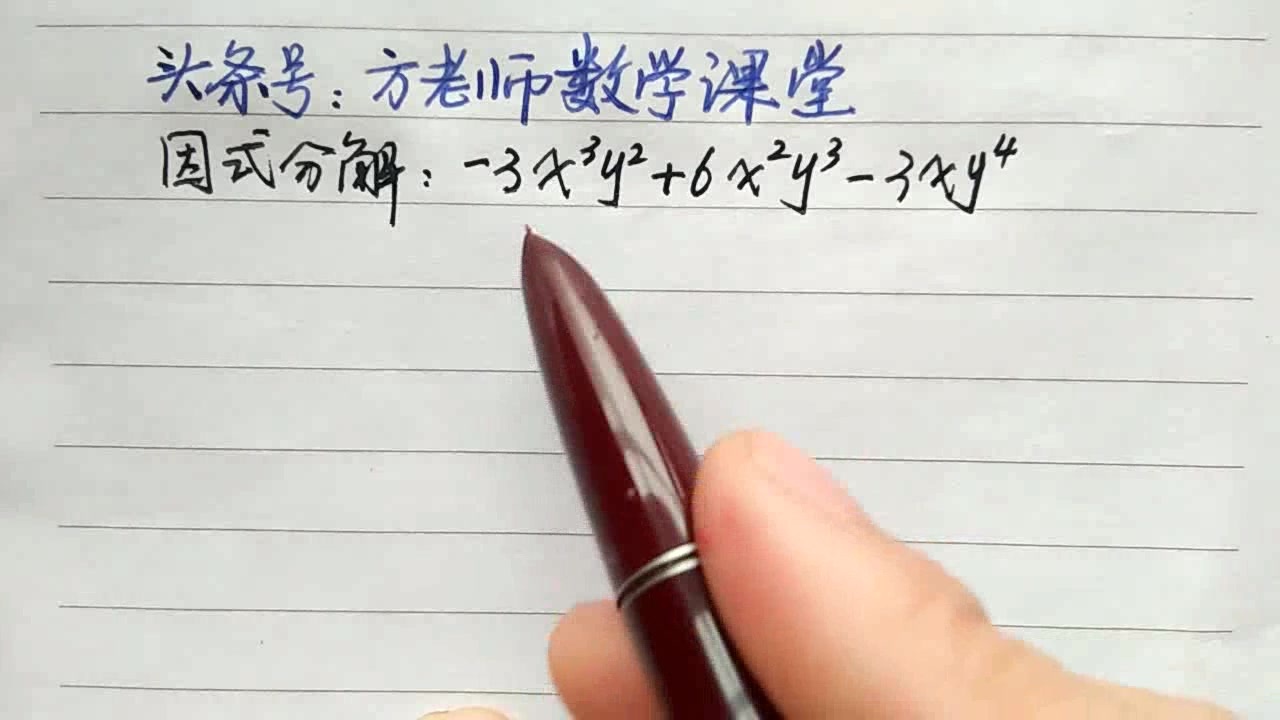 头条号：方老师数学课堂
因式分解：-3x³y²+6x²y³-3xy⁴